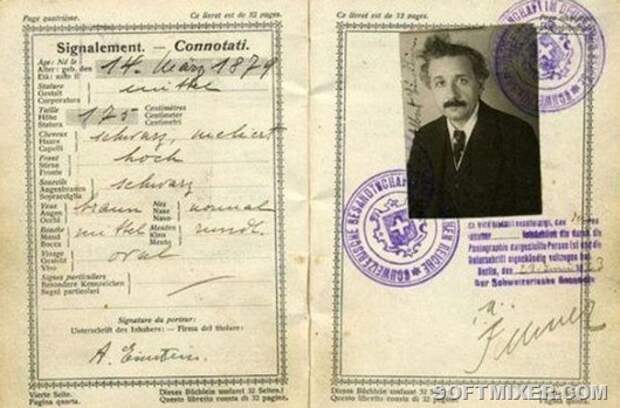 Page quatrième. Ce livret est de 32 pages.
Signalement. — Connotati.
Age: Né le
Alter: geb. den
Età: nato il
14. März 1879
Stature
Gestalt
Corporatura
mittel
Taille
Höhe
Statura
175
Centimètres
Centimeter
Centimetri
Cheveux
Haare
Capelli
schwarz, meliert
Front
Stirne
Fronte
hoch
Sourcils
Augenbrauen
Sopracciglia
schwarz
Yeux
Augen
Occhi
braun
Nez
Nase
Naso
normal
Bouche
Mund
Bocca
mittel
Menton
Kinn
Mento
rund.
Visage
Gesicht
Viso
oval
Signes particuliers
Besondere Kennzeichen
Segni particolari
Signature du porteur:
Unterschrift des Inhabers: — Firma del titolare:
A. Einstein.
Vierte Seite. Dieses Büchlein umfasst 32 Seiten.
Pagina quarta. Questo libretto consta di 32 pagine.
Ce livret est de 32 pages. Page
SCHWEIZERISCHE GESANDTSCHAFT
DEUTSCHEN REICHE
Photographie dargestellte Person ist und die
Unterschrift eigenhändig vollzogen hat.
Berlin, den
Der Schweizerische Gesandte
Dieses Büchlein umfasst 32 Seiten.
Questo libretto consta di 32 pagine.
SOFTMIXER.COM